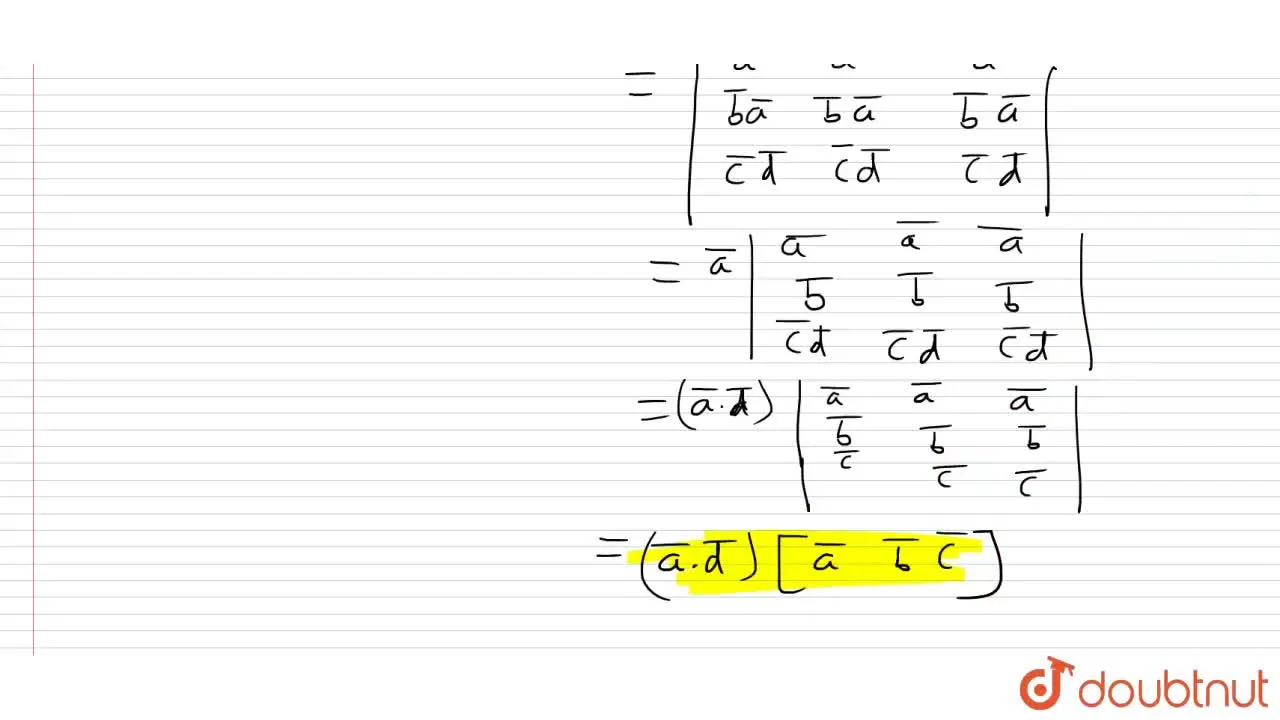 = | a̅ a̅ a̅ |
| b̅a̅ b̅a̅ b̅a̅ |
| c̅d̅ c̅d̅ c̅d̅ |
= a̅ | a̅ a̅ a̅ |
| b̅ b̅ b̅ |
| c̅d̅ c̅d̅ c̅d̅ |
= (a̅.d̅) | a̅ a̅ a̅ |
| b̅ b̅ b̅ |
| c̅ c̅ c̅ |
= (a̅.d̅) [a̅ b̅ c̅]
doubtnut